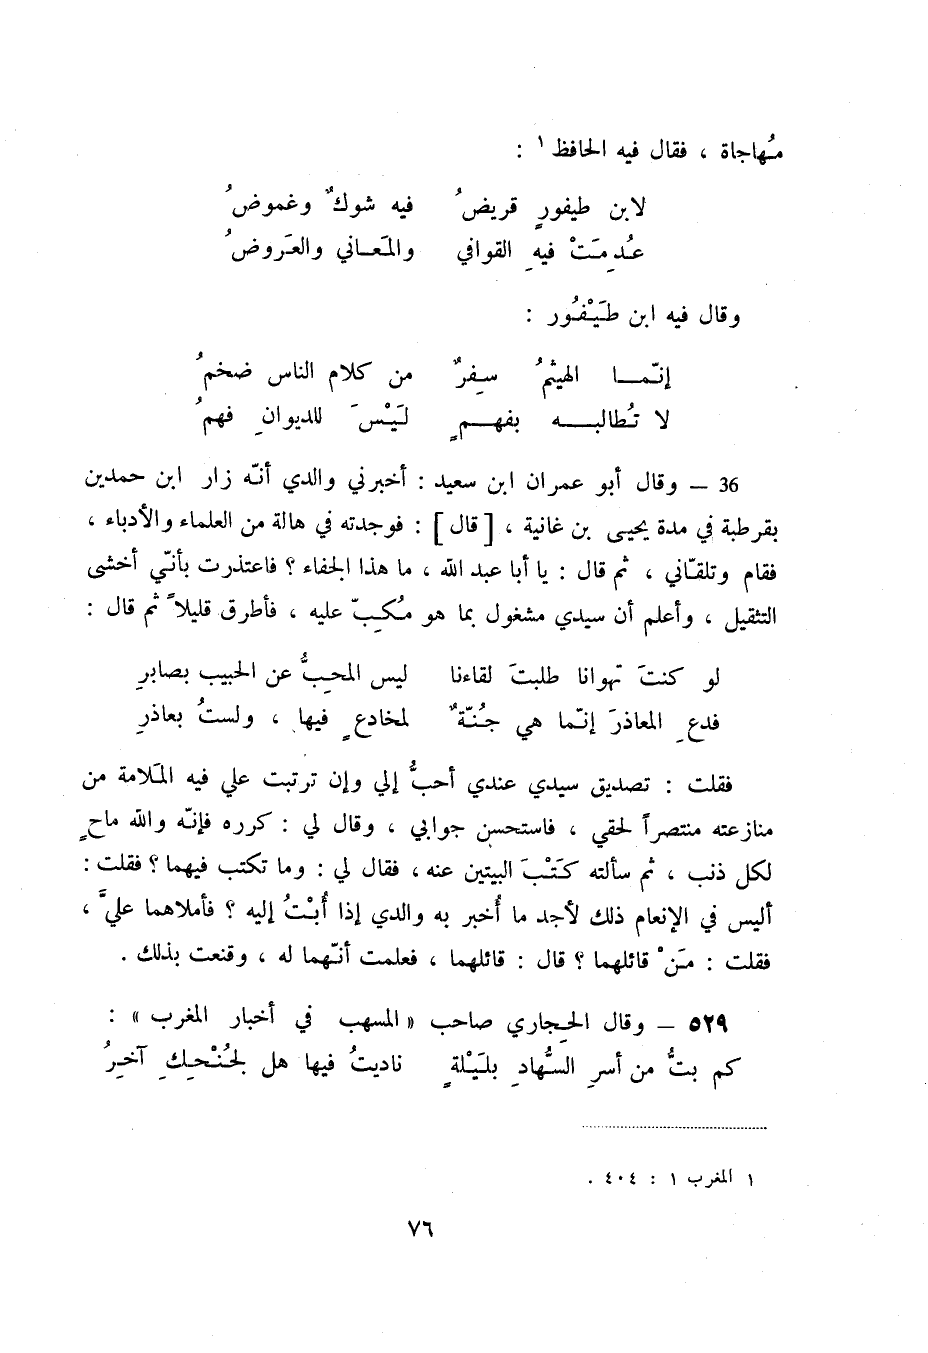 مُهاجاة ، فقال فيه الحافظ ١ :
لابن طيفورٍ قريضُ فيه شوكٌ وغموضُ
عُدِمَتْ فيهِ القوافي والمَعاني والعَروضُ
وقال فيه ابن طَيْفُور :
إنّما الهيثمُ سِفرٌ من كلام الناس ضخمُ
لا تُطالبه بفهمٍ لَيْسَ للديوانِ فهمُ
36 – وقال أبو عمران ابن سعيد : أخبرني والدي أنّه زار ابن حمدين
بقرطبة في مدة يحيى بن غانية ، [ قال ] : فوجدته في هالة من العلماء والأدباء ،
فقام وتلقّاني ، ثم قال : يا أبا عبد الله ، ما هذا الجفاء ؟ فاعتذرت بأنّي أخشى
التثقيل ، وأعلم أن سيدي مشغول بما هو مُكِبّ عليه ، فأطرق قليلاً ثم قال :
لو كنتَ تهوانا طلبتَ لقاءنا ليس المحبُّ عن الحبيب بصابرِ
فدعِ المعاذرَ إنّما هي جُنّةٌ لمخادعٍ فيها ، ولستُ بعاذرِ
فقلت : تصديق سيدي عندي أحبُّ إلي وإن ترتبت علي فيه المَلامة من
منازعته منتصراً لحقي ، فاستحسن جوابي ، وقال لي : كرره فإنّه والله ماحٍ
لكل ذنب ، ثم سألته كَتْبَ البيتين عنه ، فقال لي : وما تكتب فيهما ؟ فقلت :
أليس في الإنعام ذلك لأجد ما أُخبر به والدي إذا أُبْتُ إليه ؟ فأملاهما عليَّ ،
فقلت : مَنْ قائلهما ؟ قال : قائلهما ، فعلمت أنّهما له ، وقنعت بذلك .
٥٢٩ – وقال الحِجاري صاحب « المسهب في أخبار المغرب » :
كم بتُّ من أسرِ السُّهادِ بلَيْلةٍ ناديتُ فيها هل لجُنْحِكِ آخِرُ
١ المغرب ١ : ٤٠٤ .
٧٦